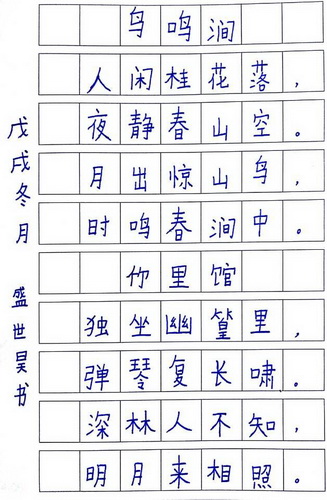 鸟鸣涧
人闲桂花落,
夜静春山空。
月出惊山鸟,
时鸣春涧中。
竹里馆
独坐幽篁里,
弹琴复长啸。
深林人不知,
明月来相照。
戊戌冬月
盛世昊书